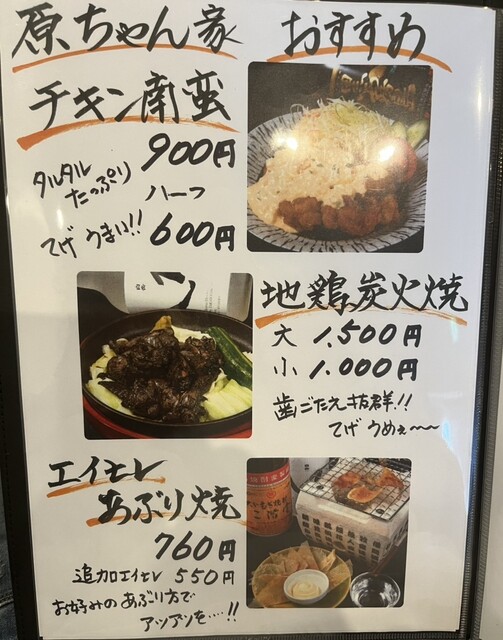 原ちゃん家 おすすめ
チキン南蛮
900円
タルタル
たっぷり
ハーフ
てげ うまい!! 600円
地鶏炭火焼
大 1,500円
小 1,000円
歯ごたえ抜群!!
てげ うめぇ〜〜
エイヒレ
あぶり焼
760円
追加エイヒレ 550円
お好みのあぶり方で
アツアツを……!!
二階堂